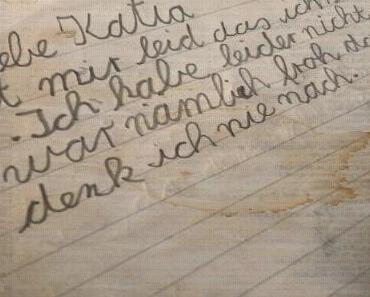 ebe Katia
t mir leid das ich
. Ich habe leider nicht
war nämlich froh da
denk ich nie nach.